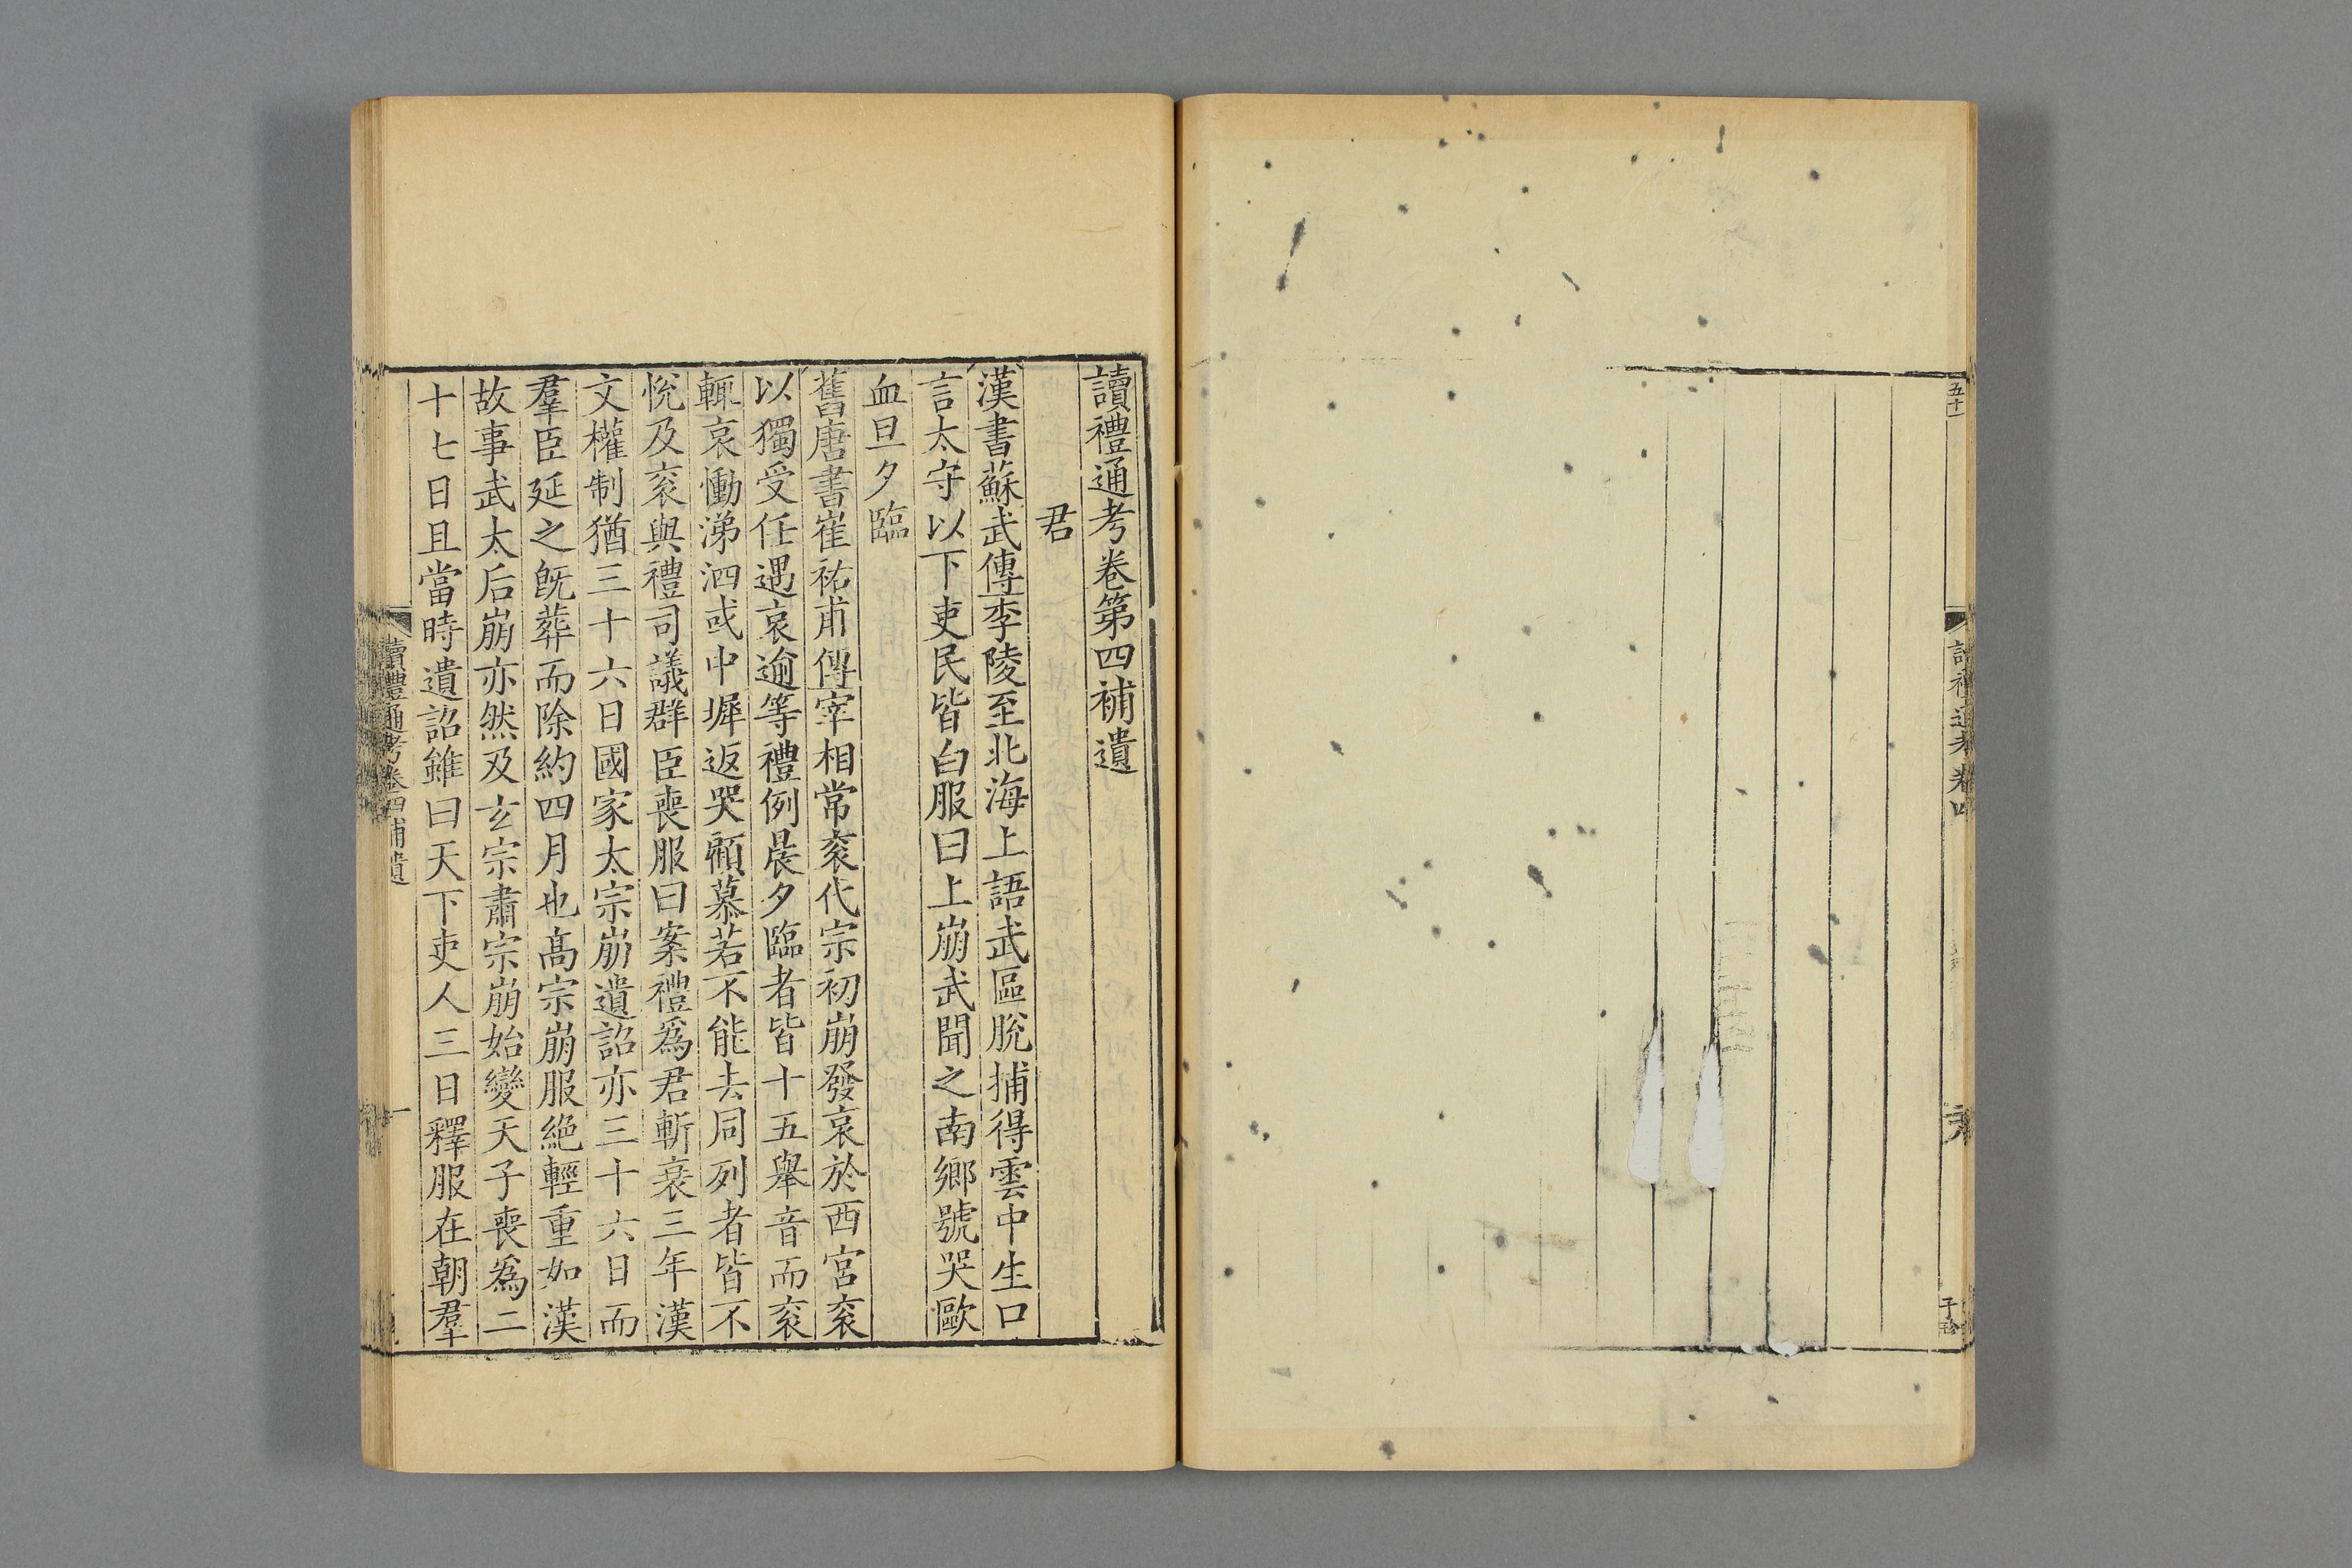 五十一
讀禮通考卷四
子珍
讀禮通考卷第四補遺
君
漢書蘇武傳李陵至北海上語武區脫捕得雲中生口
言太守以下吏民皆白服曰上崩武聞之南鄉號哭歐
血旦夕臨
舊唐書崔祐甫傳宰相常衮代宗初崩發哀於西宮衮
以獨受任遇哀逾等禮例晨夕臨者皆十五舉音而衮
輒哀慟涕泗或中墀返哭顧慕若不能去同列者皆不
悅及衮與禮司議群臣喪服曰案禮爲君斬衰三年漢
文權制猶三十六日國家太宗崩遺詔亦三十六日而
羣臣延之旣葬而除約四月也高宗崩服絕輕重如漢
故事武太后崩亦然及玄宗肅宗崩始變天子喪爲二
十七日且當時遺詔雖曰天下吏人三日釋服在朝羣
讀禮通考卷四補遺
一